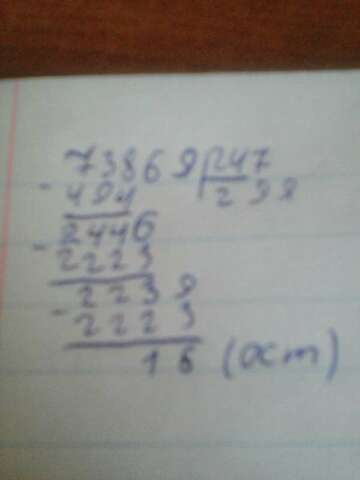 73869 247
- 494 299
2446
- 2223
2239
- 2223
16 (ост)